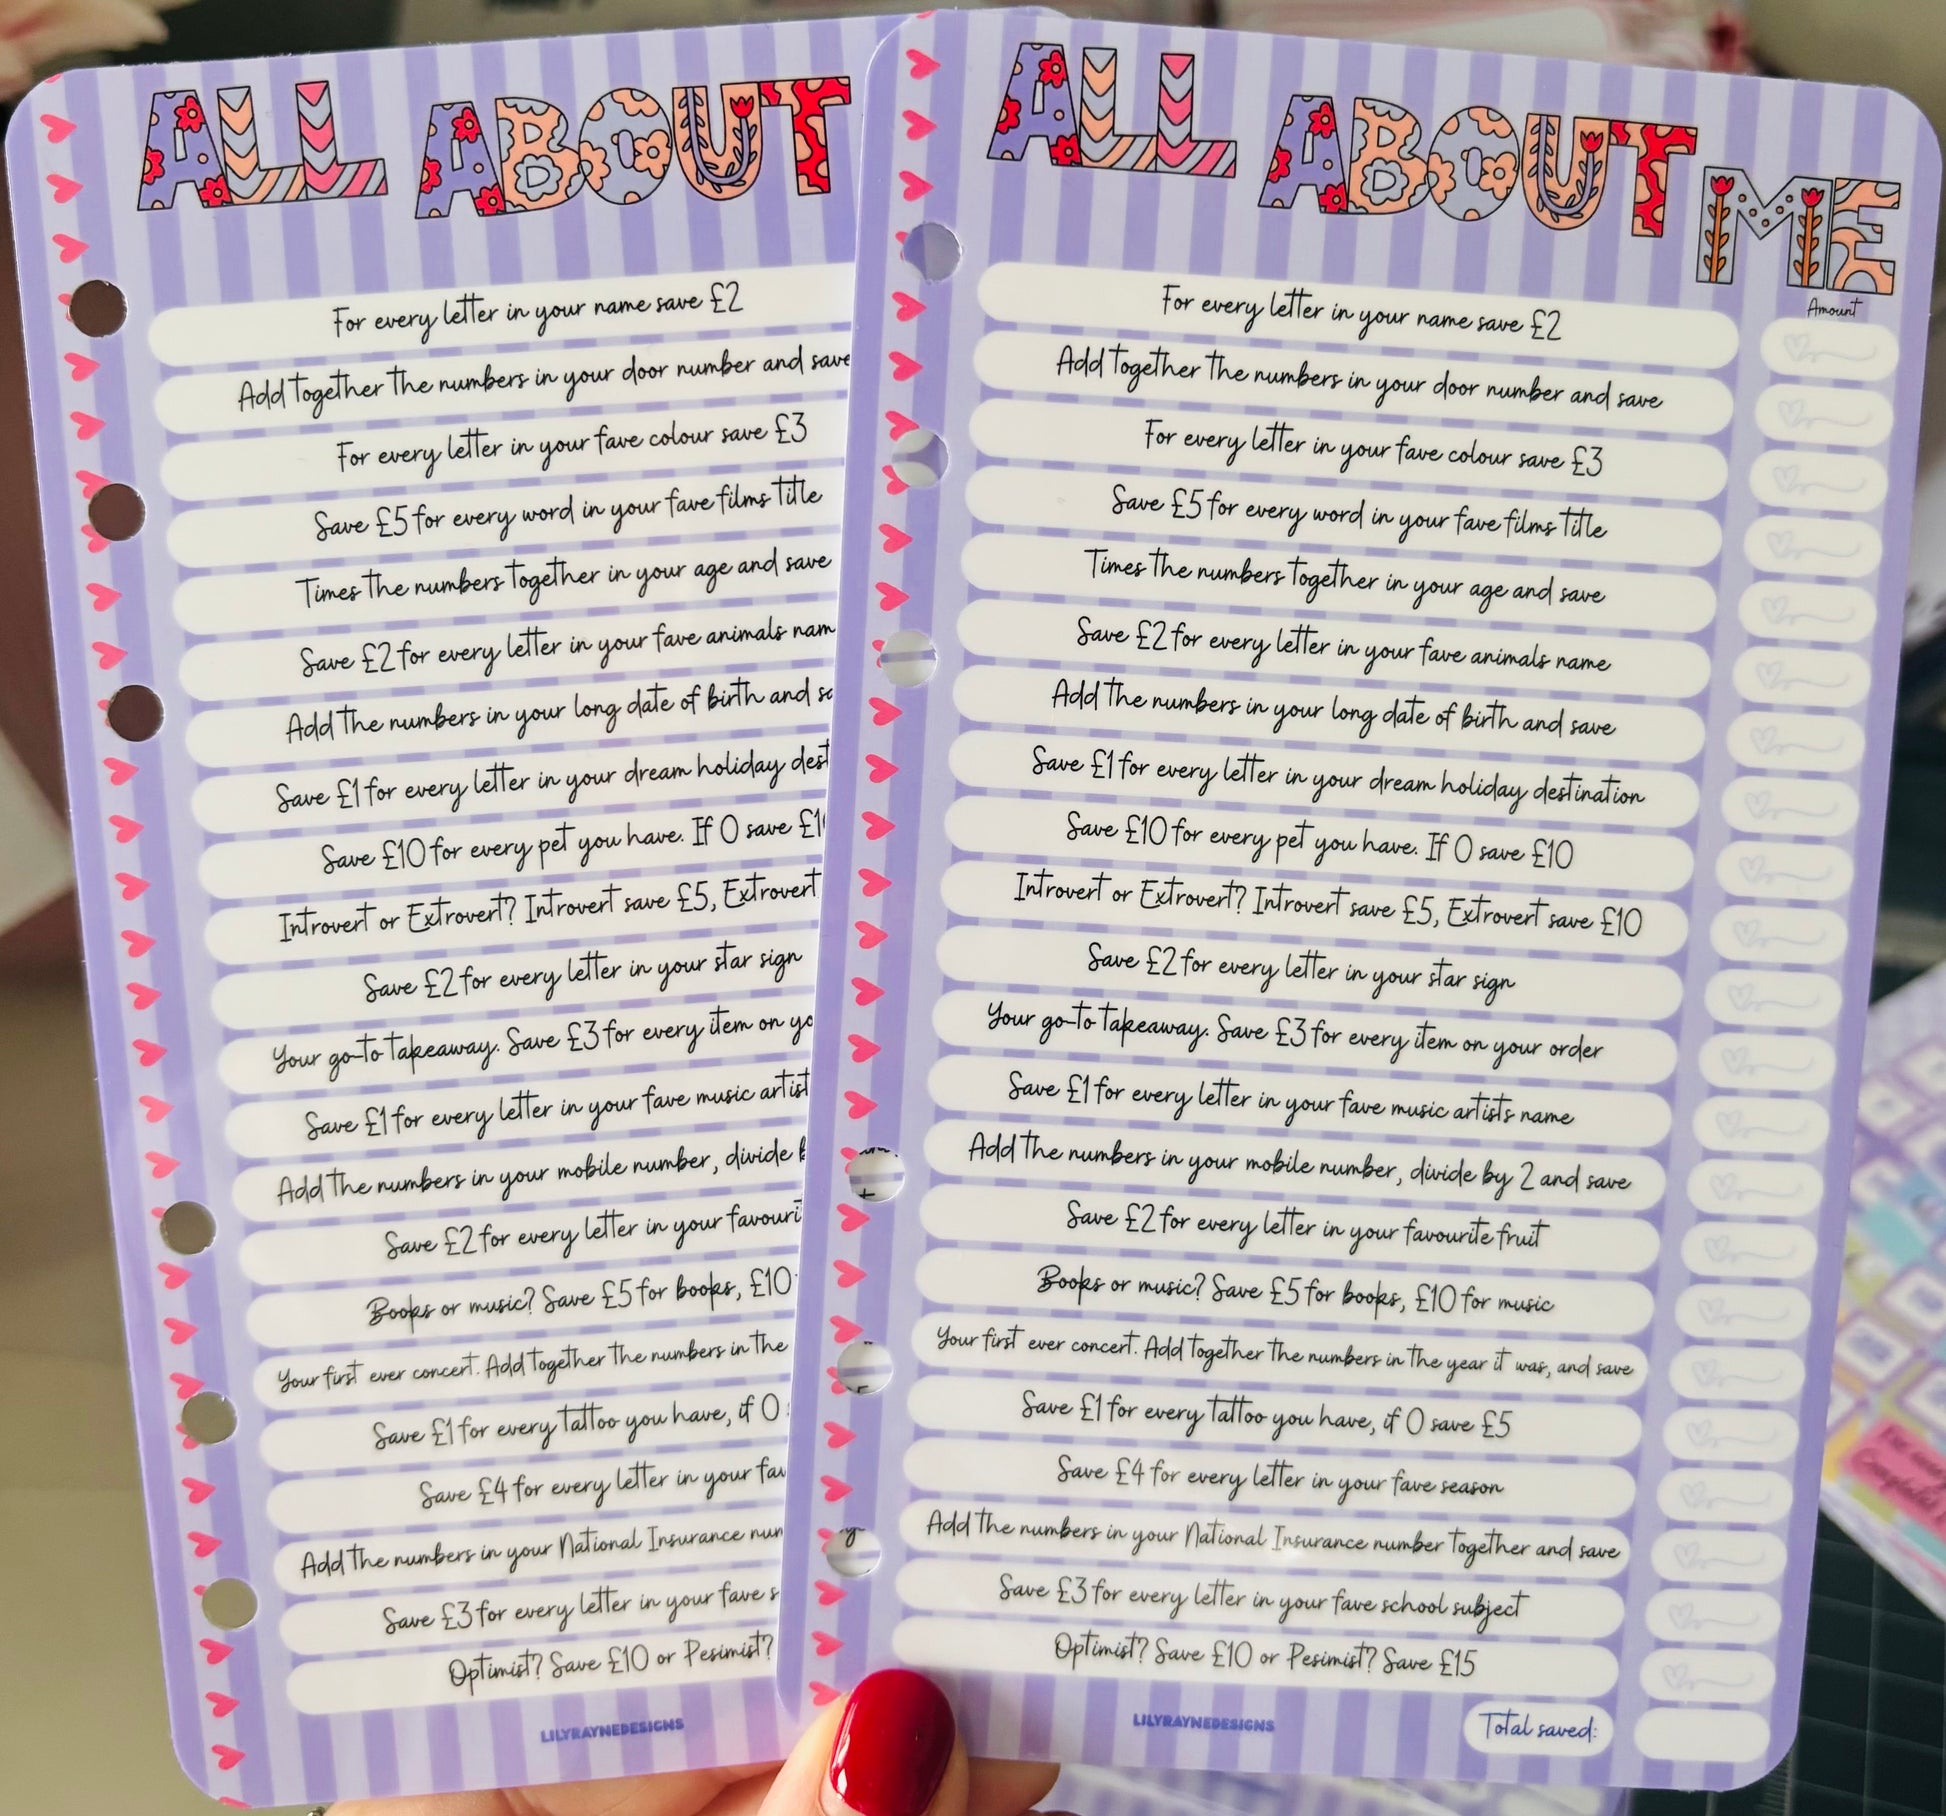 ALL ABOUT
For every letter in your name save £2
Add together the numbers in your door number and save
For every letter in your fave colour save £3
Save £5 for every word in your fave films title
Times the numbers together in your age and save
Save £2 for every letter in your fave animals nam
Add the numbers in your long date of birth and
Save £1 for every letter in your dream holiday dest
Save £10 for every pet you have. If 0 save
Introvert or Extrovert? Introvert save £5, Extrovert
Save £2 for every letter in your star sign
Your go-to takeaway. Save £3 for every item on yo
Save £1 for every letter in your fave music artist
Add the numbers in your mobile number, divide
Save £2 for every letter in your favouri
Books or music? Save £5 for books, £10
Your first ever concert. Add together the numbers in the
Save £1 for every tattoo you have, if 0
Save £4 for every letter in your fav
Add the numbers in your National Insurance num
Save £3 for every letter in your fave s
Optimist? Save £10 or Pesimist?
LILYRAYNEDESIGNS
ALL ABOUT ME
Amount
For every letter in your name save £2
Add together the numbers in your door number and save
For every letter in your fave colour save £3
Save £5 for every word in your fave films title
Times the numbers together in your age and save
Save £2 for every letter in your fave animals name
Add the numbers in your long date of birth and save
Save £1 for every letter in your dream holiday destination
Save £10 for every pet you have. If 0 save £10
Introvert or Extrovert? Introvert save £5, Extrovert save £10
Save £2 for every letter in your star sign
Your go-to takeaway. Save £3 for every item on your order
Save £1 for every letter in your fave music artists name
Add the numbers in your mobile number, divide by 2 and save
Save £2 for every letter in your favourite fruit
Books or music? Save £5 for books, £10 for music
Your first ever concert. Add together the numbers in the year it was, and save
Save £1 for every tattoo you have, if 0 save £5
Save £4 for every letter in your fave season
Add the numbers in your National Insurance number together and save
Save £3 for every letter in your fave school subject
Optimist? Save £10 or Pesimist? Save £15
LILYRAYNEDESIGNS
Total saved: